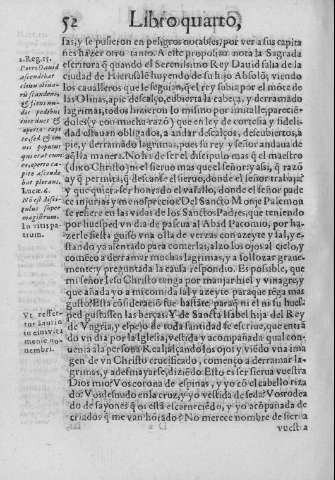 52 Libro quarto,
sas, y se pusieron en peligros notables, por ver a sus capita
nes hazer otro tanto. A este proposito nota la Sagrada
escritura q̃ quando el Serenissimo Rey Dauid salia de la
ciudad de Hierusalẽ huyendo de su hijo Absolõ, viendo
los caualleros que le seguian, q̃ el rey subia por el mõte de
las Oliuas, a pie descalço, cubierta la cabeça, y derramãdo
lagrimas, todos hizieron lo mismo por imitalle, parecie-
doles (y con mucha razõ) que en ley de cortesia y fideli-
dad estauan obligados, a andar descalços, descubiertos, a
pie, y derramãdo lagrimas, pues su rey y señor andaua de
aq̃lla manera. No ha de ser el discipulo mas q̃ el maestro
(dixo Christo) ni el sieruo mas que el señor: y assi, q̃ razõ
ay, o permite, q̃ descanse el sieruo, donde el señor trabaja?
y que quiera ser honrado el vasallo, donde el señor pade
ce injurias y menosprecios? Del Sancto Monje Palemon
se refiere en las vidas de los Sanctos Padres, que teniendo
por huesped vn dia de pascua al Abad Pacomio, por ha-
zerle fiesta guisò vna olla de versas con azeyte y sal, y e-
stando ya assentado para comerlas, alzo los ojos al cielo, y
comẽço a derramar muchas lagrimas, y a sollozar graue-
mente: y preguntada la causa respondio. Es possible, que
mi señor Iesu Christo tenga por manjar hiel y vinagre, y
que añada yo a mi comida sal y azeyte para que tẽga mas
gusto? Esta cõsideraciõ fue bastãte para q̃ ni el ni su hues-
ped gustassen las berças. Y de Sancta Isabel hija del Rey
de Vngria, y espejo de toda santidad se escriue, que entrã
do vn dia por la Iglesia, vestida y acompañada qual con-
uenia a la persona Real, alçando los ojos, y viẽdo vna ima
gen de vn Christo crucificado, començo a derramar la-
grimas, y a desmayarse, diziẽdo: Esto es ser sierua vuestra
Dios mio? Vos corona de espinas, y yo cõ el cabello riza
do: Vos desnudo en la cruz, y yo vestida de seda: Vos rodea
do de sayones q̃ os està escarneciẽdo, y yo acõpañada de
criados q̃ me van horado? No merece nombre de sierua
vuestra
2. Reg. 15.
Porro Dauid
ascendebat
cliuum oliua-
rũ scandens
& flens nu-
dis pedibus
incedens &
operto capi-
te, sed & om-
nis populus
qui erat cum
eo operto capi-
te ascende-
bat plorans.
Lucæ. 6.
Nõ est disci-
pulus super
magistrum.
In vitis pa-
trum.